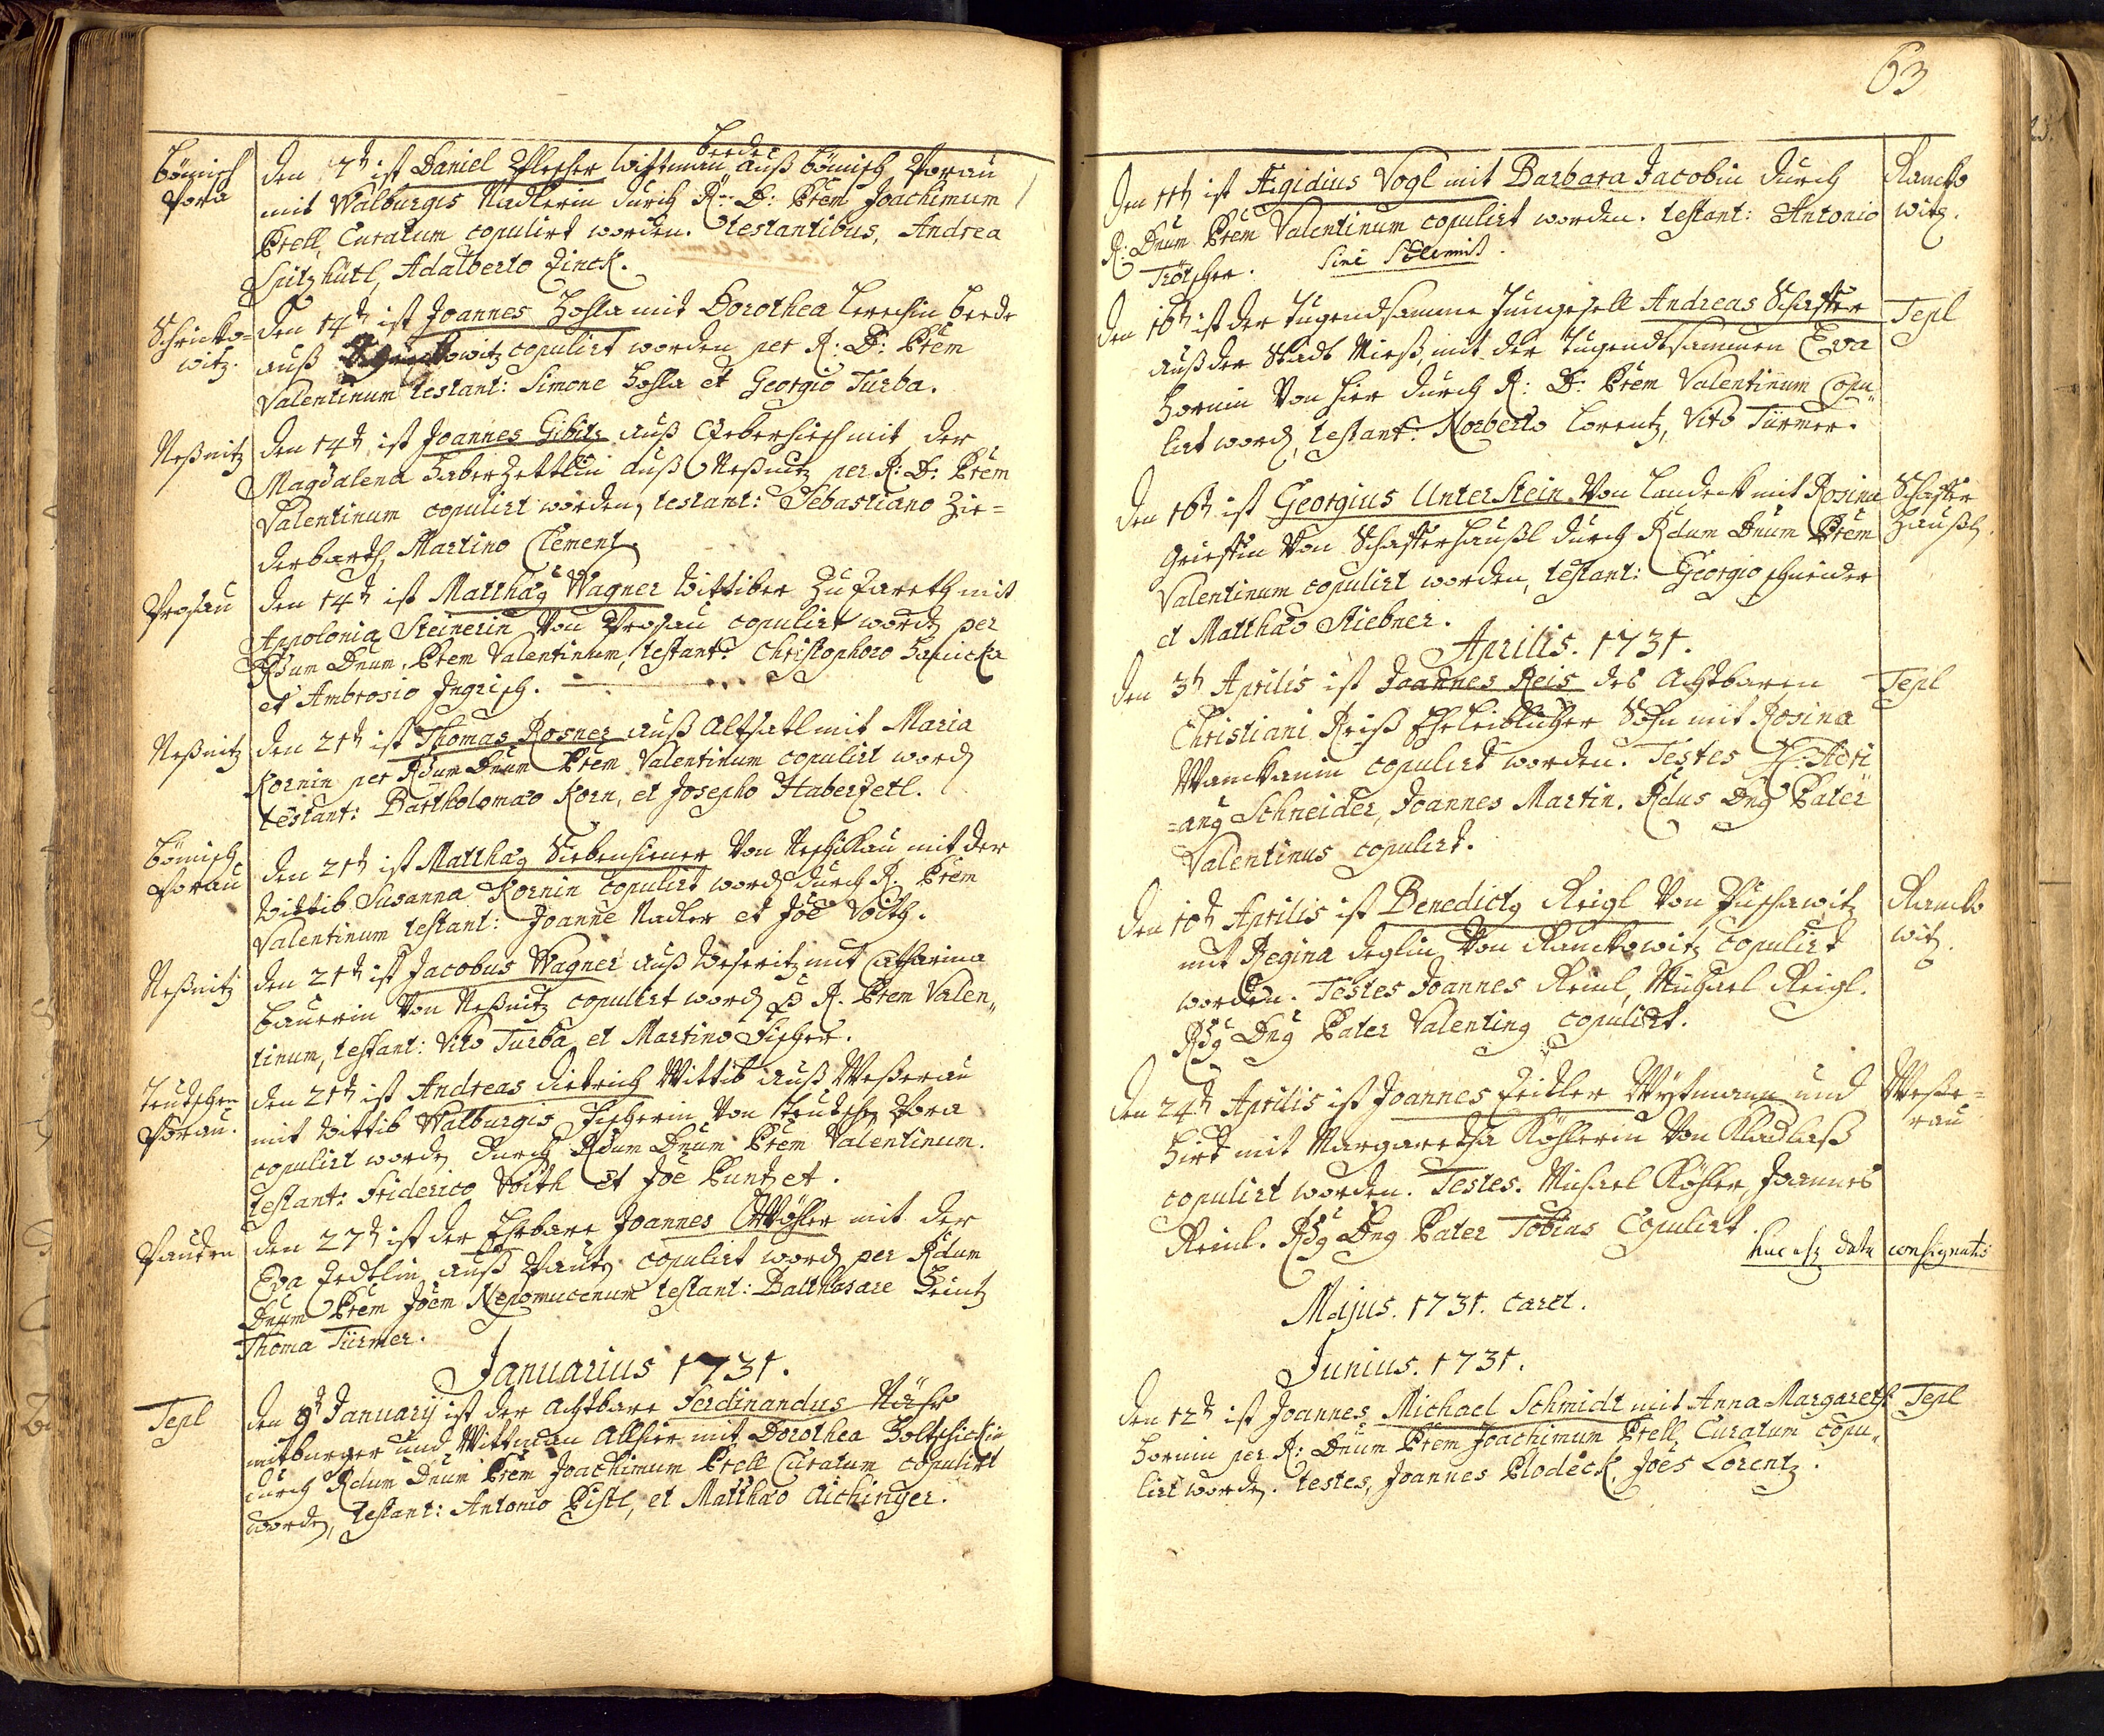 Bömisch
Pora
den 7t ist Daniel Plescher Wittman beede auß bömisch Porau
mit Walburgis Nadlerin durch R: D: Prem Joachimum
Prell, Curatum copulirt worden. testantibus, Andrea
Spitzhütl, Adalberto Zinck.
Schricko=
witz.
den 14t ist Joannes Hosla mit Dorothea Lerchin beede
auß copulirt worden per R: D: Prem
Valentinum testant: Simone Hosla et Georgio Turba.
Neßnitz
den 14t ist Joannes Gibitz auß mit der
Magdalena Haberzettlin auß Neßnitz per R: D: Prem
Valentinum copulirt worden, testant: Sebastiano Zie=
derbarth, Martino Clement.
Prosau
den 14t ist Matthæg Wagner Wittiber zu mit
Appolonia Steinerin von Prosau copulirt worden per
Rdum Dnum Prem Valentinum, testant: Christophoro Hanicka
et Ambrosio Ingrisch.
Neßnitz
den 21t ist Thomas Rosner auß Altsatl mit Maria
Kornin per Rdum Dnum Prem Valentinum copulirt word
testant: Bartholomæo Korn, et Josepho Haberzetl.
bömisch
Porau
den 21t ist Matthæg Siebenhiener von mit der
Wittib Susanna Kornin copulirt word durch R. Prem
Valentinum testant: Joanne Nadler et Joe Voith.
Neßnitz
den 21t ist Jacobus Wagner auß Weseritz mit Catharina
Bauerin von Neßnitz copulirt word p R. Prem Valen„
tinum, testant: Vito Turba et Martino Fischer.
teutschen
Porau.
den 21t ist Andreas Dietrich Wittib auß Weßerau
mit Wittib Walburgis Fischerin von teutsch Pora
copulirt worden durch Rdum Dnum Prem Valentinum.
testant: Friderico Voith et Joe Puntzet.
Pauten
den 27t ist der Ehrbare Joannes Wöhler mit der
Eva Zedtlin auß Pauten copulirt word per Rdum
Dnum Prem Joem Nepomucenum testant: Balthasare Heintz
Thoma Türmer.
Januarius 1731.
Tepl
den 9t January ist der achtbare Ferdinandus Nähr
mitburger und Wittman allhier mit Dorothea Holtschickin
durch Rdum Dnum Prem Joachimum Prell Curatum copulirt
worden, testant: Antonio Pistl, et Matthæo Aichinger.
63
den 11t ist Ægidius Vogl mit Barbara Jacobin durch
Rancko
R: Dnum Prem Valentinum copulirt worden. testant: Antonio
witz.
Trötscher. Sine Solemnit.
den 16t ist der tugendsamme Junggesell Andreas Schaffer
Tepl
auß der Stadt Mieß, mit der tugendsammen Eva
Hornin von hier durch R: D: Prem Valentinum Copu„
lirt word, testant: Norberto Lorentz, Vito Türmer.
den 16t ist Georgius Unterstein von Landeck mit Rosina
Schaffer
von Schafferhäußl durch Rdum Dnum Prem
häußl.
Valentinum copulirt worden, testant: Georgio schneider
et Matthæo Stiebner.
Aprilis. 1731.
den 3t Aprilis ist Joannes Reis des Achtbaren
Tepl
Christiani Reiß Eheleiblicher Sohn mit Rosina
Wanckanin copulirt worden. Testes H: Adri
=ang Schneider, Joannes Martin. Rdus Dng Pater
Valentinus copulirt.
den 10t Aprilis ist Benedictg Reigl von Puschawitz
Rancko
mit Regina Deglin von Ranckowitz copulirt
witz.
worden. Testes Joannes Reinl, Michael Reigl.
Rdg Dng Pater Valenting copulirt.
den 24t Aprilis ist Joannes Zeidler Wytmann und
Weße=
Hirt mit Margaretha Köhlerin von Kladlaß
rau
copulirt worden. Testes. Michael Köhler, Joannes
Reinl. Rdg Dng Pater Tobias Copulirt.
huc usq data consignata
Majus. 1731. caret.
Junius. 1731.
den 12t ist Joannes Michael Schmidt mit Anna Margareth
Tepl
Hornin per R: Dnum Prem Joachimum Prell Curatum copu„
lirt worden. testes, Joannes Plodeck, Joes Lorentz.